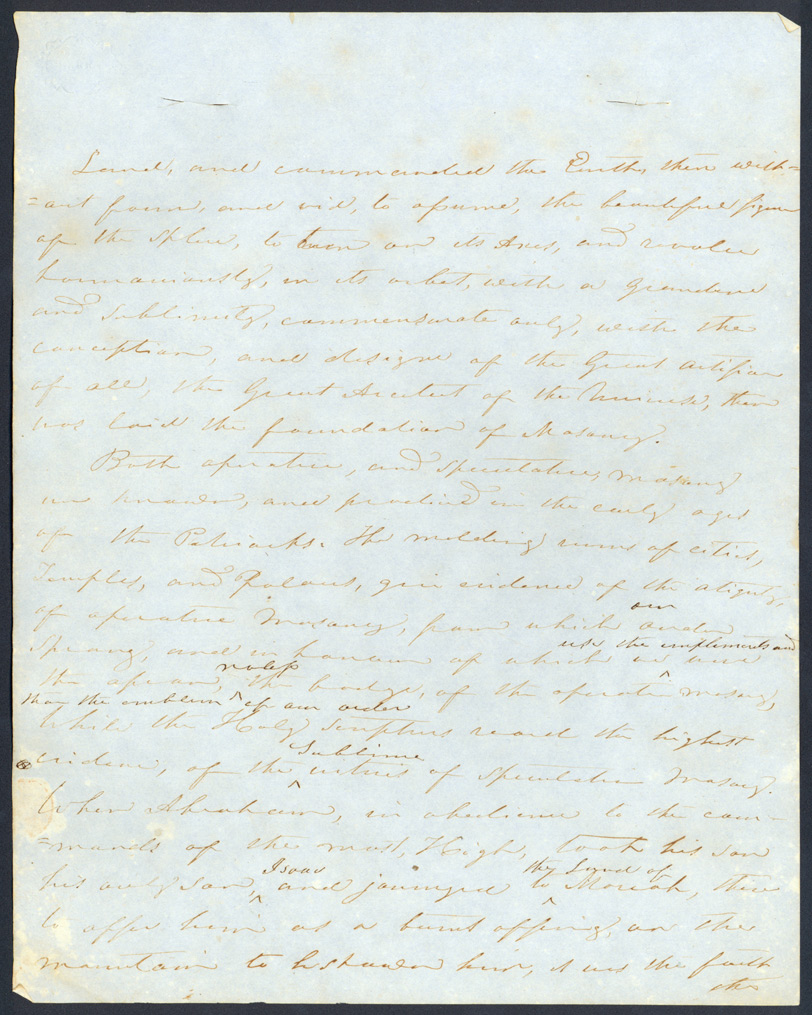 Land, and commanded the Earth, then with=
=out form, and void, to assume, the beautiful figure
of the Sphere, to turn on its Axes, and revolve
harmoniously, in its orbet, with a Grandure
and Sublimity, commensurate only, with the
conception, and designe of the Great artifier
of all, the Great Arcitect of the Universe, then
was laid the foundation of Masonry.
Both operative, and Speculative, masonry
was known, and practised in the early ages
of the Patriarks. The molding ruins of cities,
Temples, and Palaces, give evidence of the atiquity,
of operative Masonry, from which our order
Sprang, and in honour of which we use the impliments and
the apron, the badge, of the operative masonry,
the emblem of our order
while the Holy Scriptures record the highest
evidence, of the Sublime virtues of Speculative Masonry.
When Abraham, in obedience to the com-
=mands of the most, High, took his son
his only son, Isaac and journyed to the Land of Moriah, there
to offer him as a burnt offring, on the
mountain to be shown him, it was the faith